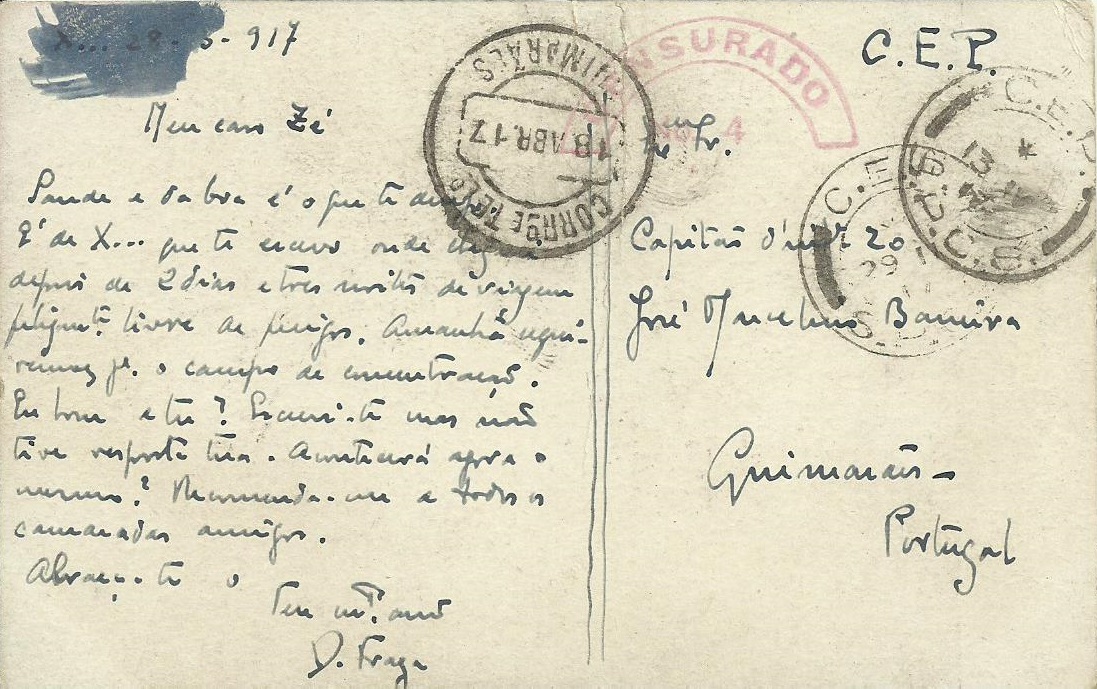 X... 28-3-917
Meu caro Zé
Saude e da boa é o que te
É de X... que te escrevo onde
depois de 2 dias e tres noites de viagem
livre de perigos. Amanhã
o campo de concentração.
Eu bom e tu? Escrevi-te mas não
tive resposta tua. Acontecerá agora o
mesmo? Recomenda-me a todos os
camaradas amigos.
Abraça-te o
Teu
D. Fraga
CORRO E TELO
18 ABR. 17
GUIMARÃES
CENSURADO
4
C.E.P.
C.E.P.
13
S.P.C.8
C.E.
29
S.P.
Capitão d'inf. 20
José Marcelino Barreira
Guimarães
Portugal